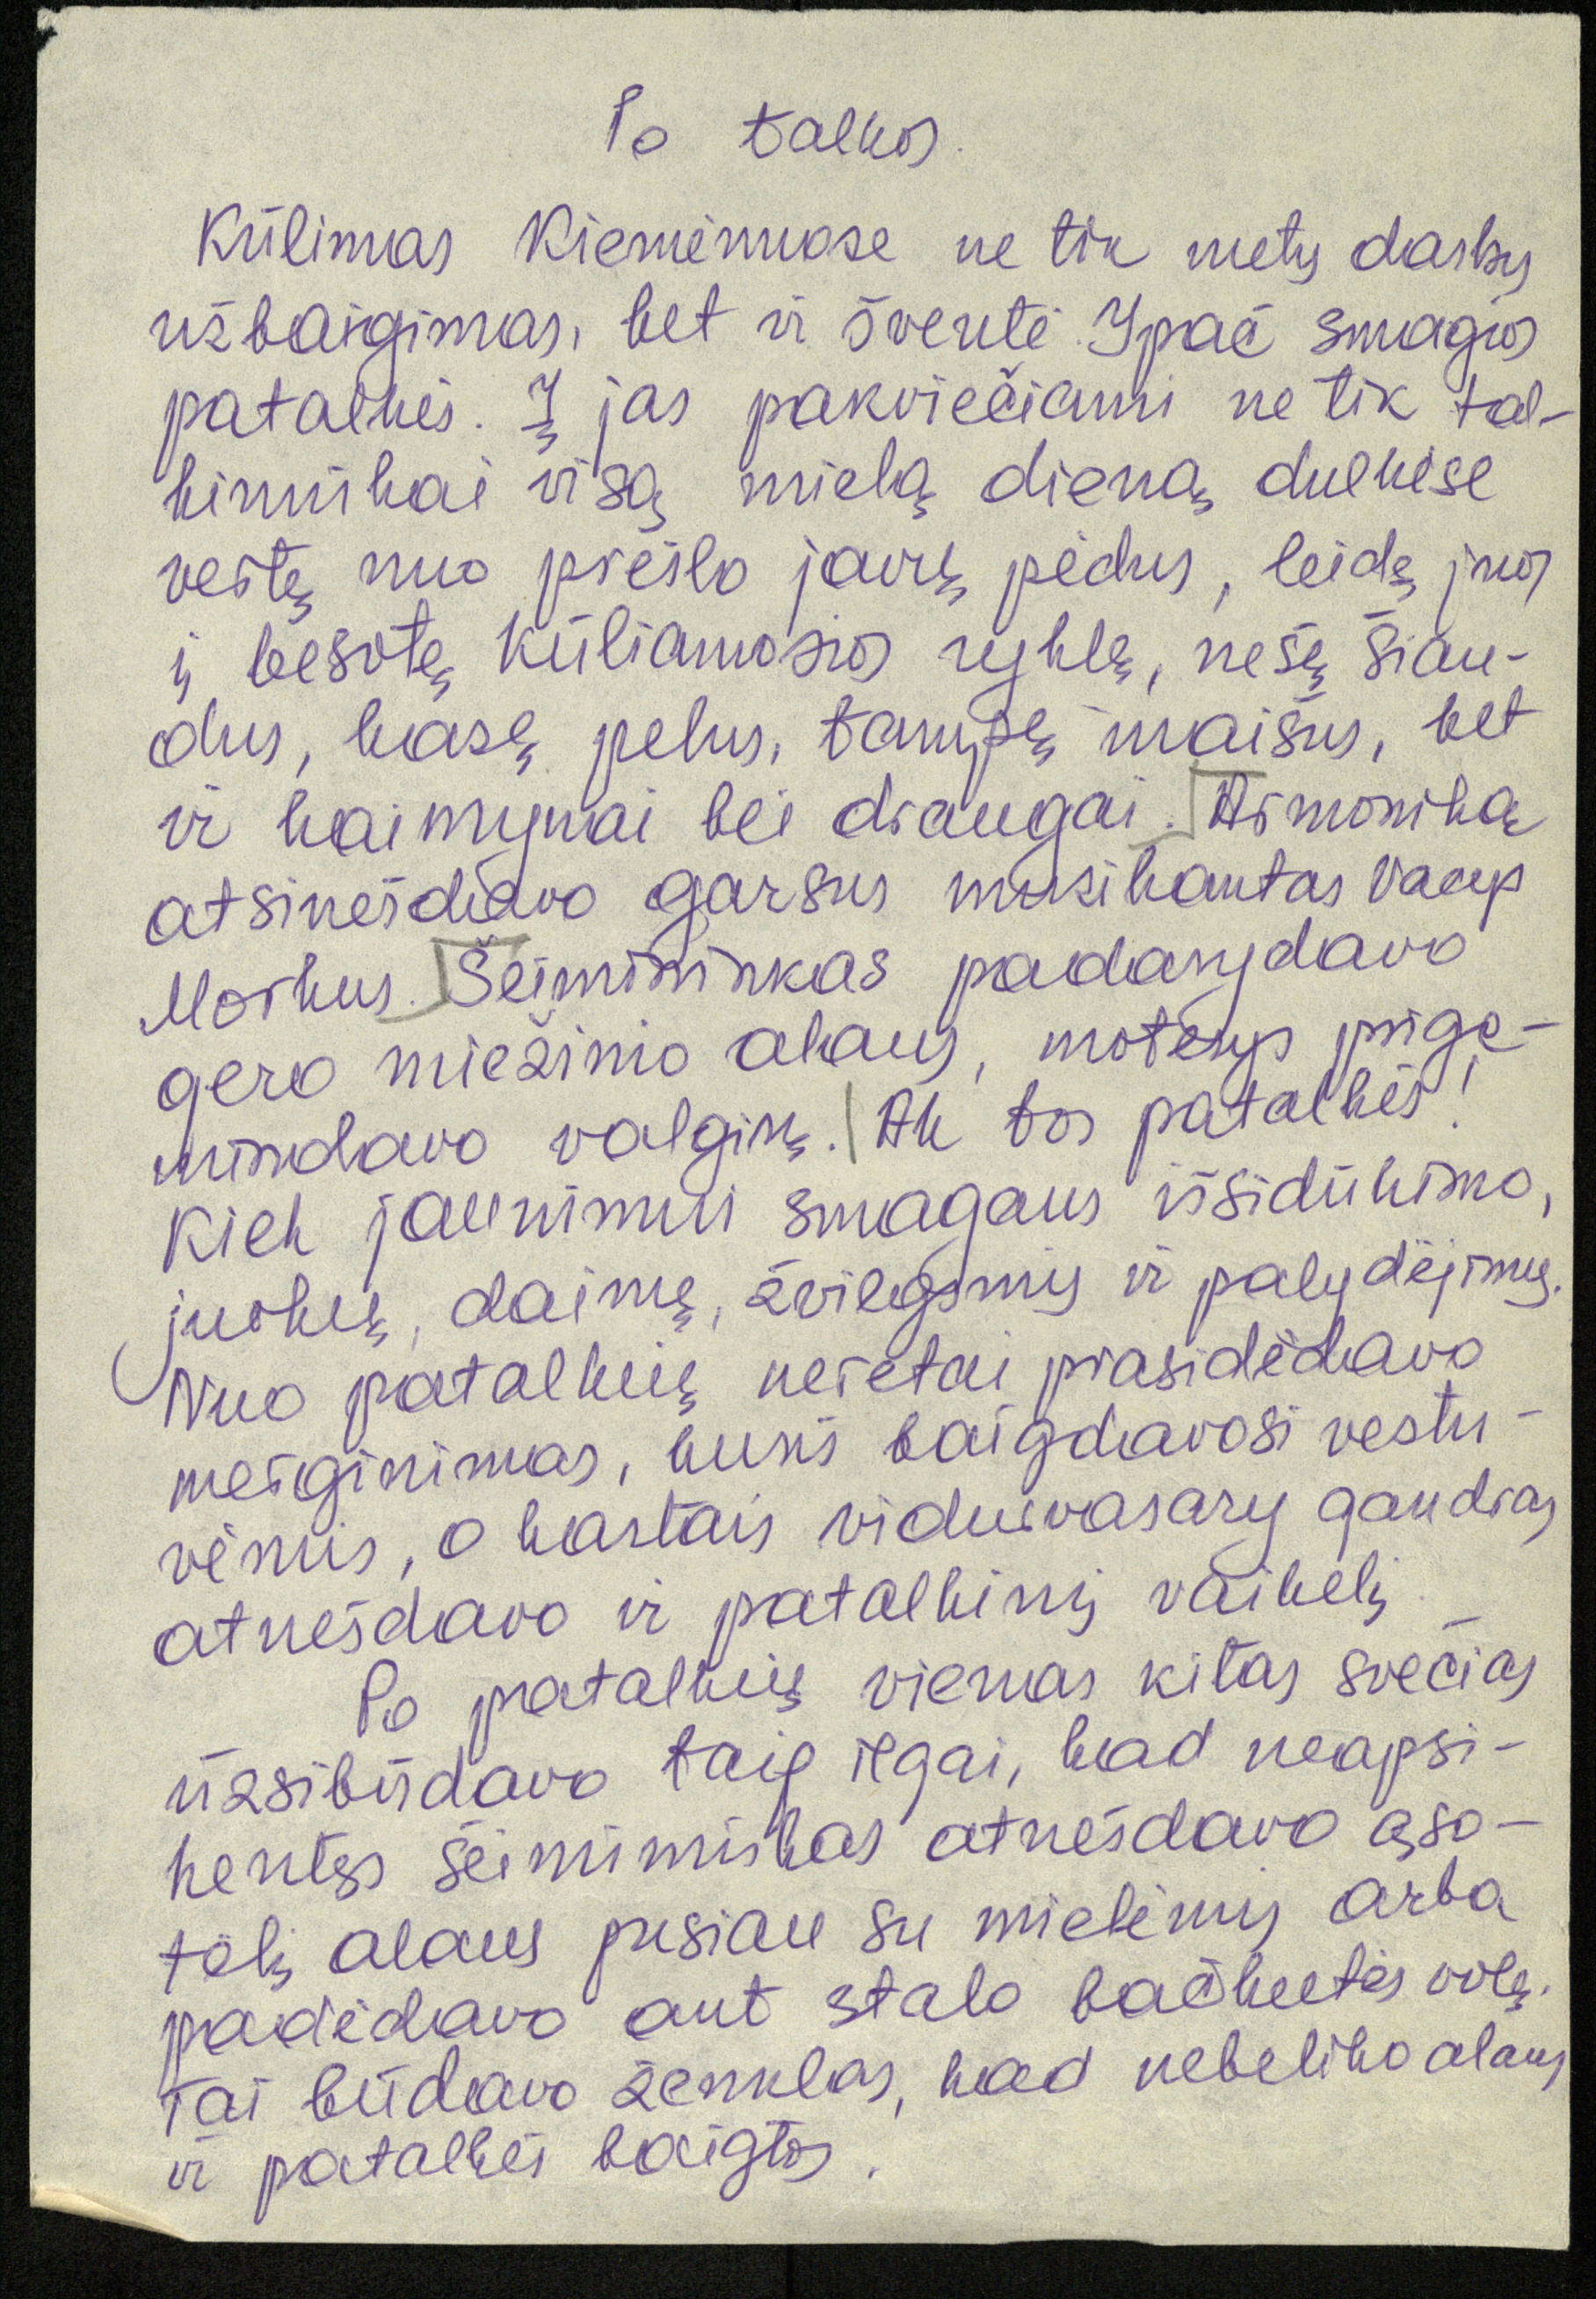 Po talkos.
Kūlimas Kiemėnuose ne tik metų darbų
užbaigimas, bet ir šventė. Ypač smagios
patalkės. Į jas pakviečiami ne tik tal-
kininkai visą mielą dieną dulkėse
vertę nuo prėslo javų pėdus, leidę juos
į besotę kūliamosios ryklę, nešę šiau-
dus, kasę pelus, tampę maišus, bet
ir kaimynai bei draugai. Armoniką
atsinešdavo garsus muzikantas Vacys
Morkus. Šeimininkas padarydavo
gero miežinio alaus, moterys priga-
mindavo valgių. Ak tos patalkės!
Kiek jaunimui smagaus išsidūkimo,
juokų, dainų, žvilgsnių ir palydėjimų.
Nuo patalkių neretai prasidėdavo
merginimas, kuris baigdavosi vestu-
vėmis, o kartais viduvasary gandras
atnešdavo ir patalkinį vaikelį.
Po patalkių vienas kitas svečias
užsibūdavo taip ilgai, kad neapsi-
kentęs šeimininkas atnešdavo ąso-
tėlį alaus pusiau su mielėmis arba
padėdavo ant stalo bačkutės volę.
Tai būdavo ženklas, kad nebeliko alaus
ir patalkės baigtos.